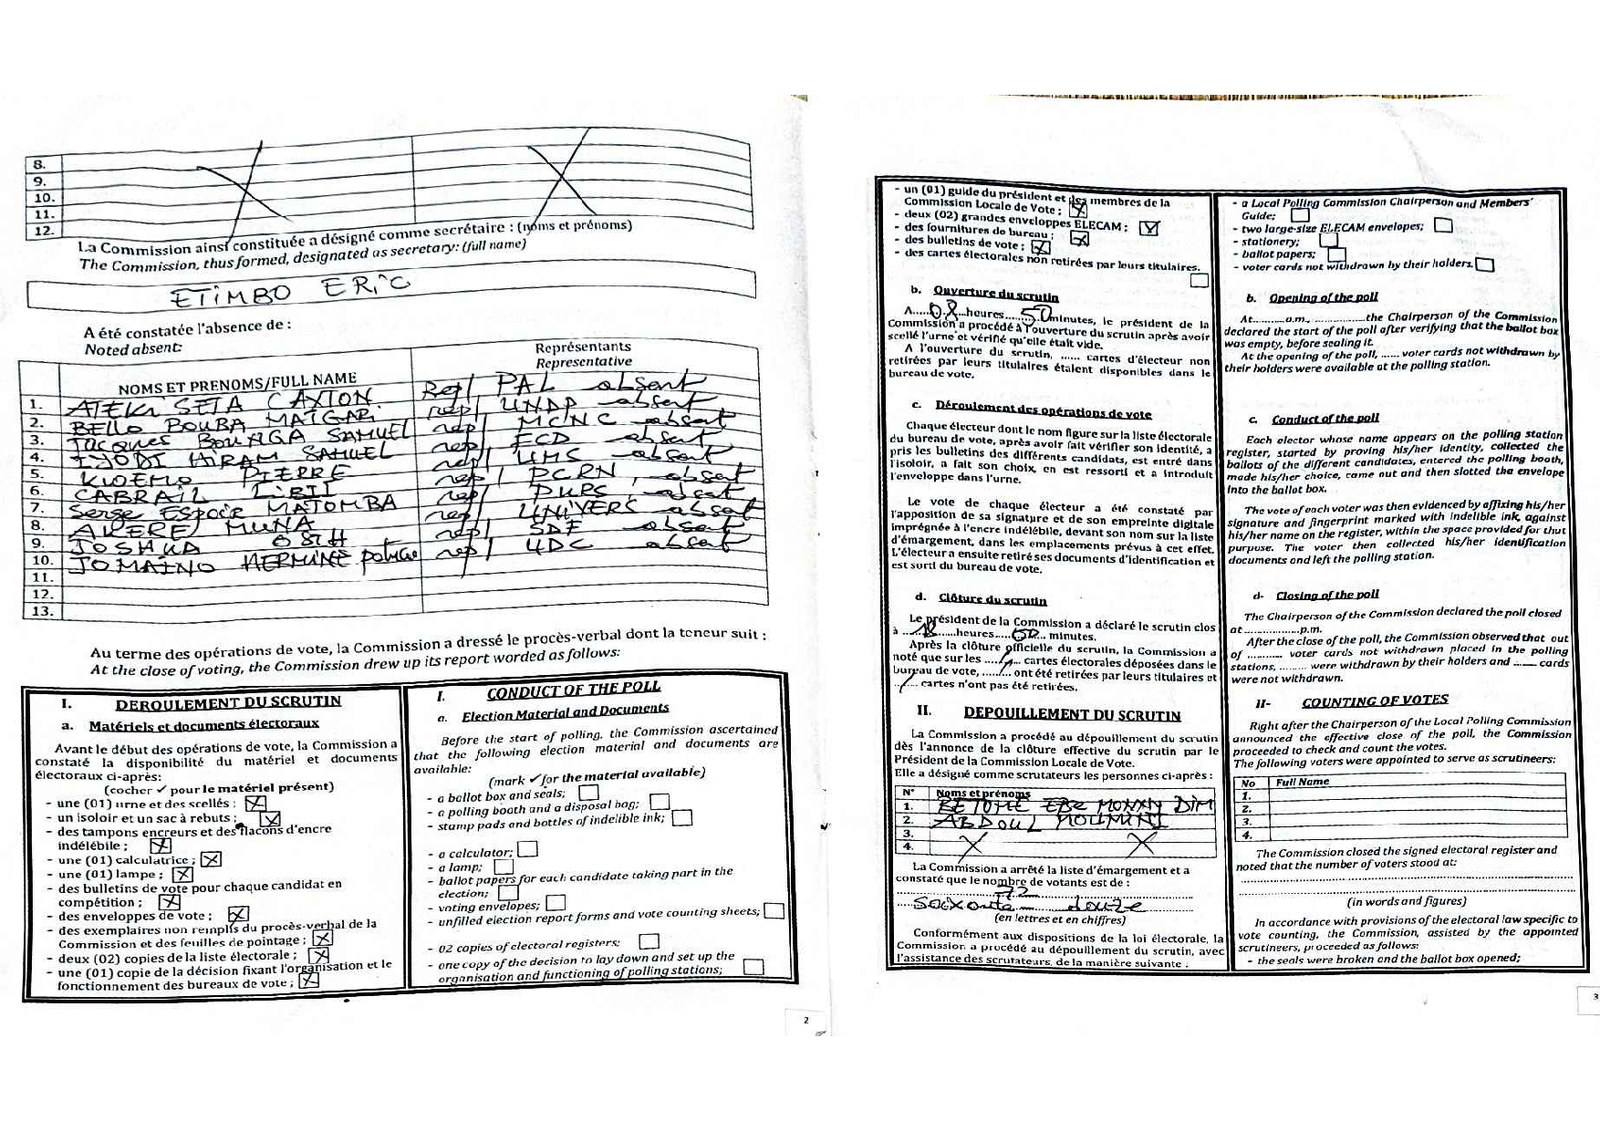 8.
9.
10.
11.
12.
La Commission ainsi constituée a désigné comme secrétaire : (noms et prénoms)
The Commission, thus formed, designated as secretary: (full name)
ETIMBO ERIC
A été constatée l'absence de :
Noted absent:
NOMS ET PRENOMS/FULL NAME
Représentants
Representative
1. ATEKI SETA CAXTON Rep/ PAL absent
2. BELLO BOUBA MAIGARI rep/ UNDP absent
3. Jacques BOUAGA SAMUEL rep/ MCNC absent
4. TJODI HIRAM SAMUEL rep/ FCD absent
5. KWEMO PIERRE rep/ UMS absent
6. CABRAIL LIBII rep/ PCRN, absent
7. Serge ESPOIR MATOMBA rep/ PURS absent
8. AKERE MUNA rep/ UNIVERS absent
9. JOSHUA OSIH rep/ SDF absent
10. TOMAINO HERMINE Patricia rep/ UDC absent
11.
12.
13.
Au terme des opérations de vote, la Commission a dressé le procès-verbal dont la teneur suit :
At the close of voting, the Commission drew up its report worded as follows:
I. DEROULEMENT DU SCRUTIN
a. Matériels et documents électoraux
Avant le début des opérations de vote, la Commission a
constaté la disponibilité du matériel et documents
électoraux ci-après:
(cocher ✓ pour le matériel présent)
- une (01) urne et des scellés ;
- un isoloir et un sac à rebuts ;
- des tampons encreurs et des flacons d'encre
indélébile ;
- une (01) calculatrice ;
- une (01) lampe ;
- des bulletins de vote pour chaque candidat en
compétition ;
- des enveloppes de vote ;
- des exemplaires non remplis du procès-verbal de la
Commission et des feuilles de pointage ;
- deux (02) copies de la liste électorale ;
- une (01) copie de la décision fixant l'organisation et le
fonctionnement des bureaux de vote ;
I. CONDUCT OF THE POLL
a. Election Material and Documents
Before the start of polling, the Commission ascertained
that the following election material and documents are
available:
(mark ✓ for the material available)
- a ballot box and seals;
- a polling booth and a disposal bag;
- stamp pads and bottles of indelible ink;
- a calculator;
- a lamp;
- ballot papers for each candidate taking part in the
election;
- voting envelopes;
- unfilled election report forms and vote counting sheets;
- 02 copies of electoral registers;
- one copy of the decision to lay down and set up the
organisation and functioning of polling stations;
2
- un (01) guide du président et des membres de la
Commission Locale de Vote ;
- deux (02) grandes enveloppes ELECAM ;
- des fournitures de bureau ;
- des bulletins de vote ;
- des cartes électorales non retirées par leurs titulaires.
b. Ouverture du scrutin
A.....08...heures.....50 minutes, le président de la
Commission a procédé à l'ouverture du scrutin après avoir
scellé l'urne et vérifié qu'elle était vide.
A l'ouverture du scrutin, ...... cartes d'électeur non
retirées par leurs titulaires étaient disponibles dans le
bureau de vote.
c. Déroulement des opérations de vote
Chaque électeur dont le nom figure sur la liste électorale
du bureau de vote, après avoir fait vérifier son identité, a
pris les bulletins des différents candidats, est entré dans
l'isoloir, a fait son choix, en est ressorti et a introduit
l'enveloppe dans l'urne.
Le vote de chaque électeur a été constaté par
l'apposition de sa signature et de son empreinte digitale
imprégnée à l'encre indélébile, devant son nom sur la liste
d'émargement, dans les emplacements prévus à cet effet.
L'électeur a ensuite retiré ses documents d'identification et
est sorti du bureau de vote.
d. Clôture du scrutin
Le président de la Commission a déclaré le scrutin clos
à ...18...heures.... minutes.
Après la clôture officielle du scrutin, la Commission a
noté que sur les ..../.... cartes électorales déposées dans le
bureau de vote, ..../.... ont été retirées par leurs titulaires et
../.. cartes n'ont pas été retirées.
II. DEPOUILLEMENT DU SCRUTIN
La Commission a procédé au dépouillement du scrutin
dès l'annonce de la clôture effective du scrutin par le
Président de la Commission Locale de Vote.
Elle a désigné comme scrutateurs les personnes ci-après :
N° Noms et prénoms
1. BETOME
2. ABDOUL MOUMINI
3.
4.
La Commission a arrêté la liste d'émargement et a
constaté que le nombre de votants est de :
72
soixante douze
(en lettres et en chiffres)
Conformément aux dispositions de la loi électorale, la
Commission a procédé au dépouillement du scrutin, avec
l'assistance des scrutateurs, de la manière suivante :
- a Local Polling Commission Chairperson and Members'
Guide;
- two large-size ELECAM envelopes;
- stationery;
- ballot papers;
- voter cards not withdrawn by their holders.
b. Opening of the poll
At..........a.m, ..................the Chairperson of the Commission
declared the start of the poll after verifying that the ballot box
was empty, before sealing it.
At the opening of the poll, ...... voter cards not withdrawn by
their holders were available at the polling station.
c. Conduct of the poll
Each elector whose name appears on the polling station
register, started by proving his/her identity, collected the
ballots of the different candidates, entered the polling booth,
made his/her choice, came out and then slotted the envelope
into the ballot box.
The vote of each voter was then evidenced by affixing his/her
signature and fingerprint marked with indelible ink, against
his/her name on the register, within the space provided for that
purpose. The voter then collected his/her identification
documents and left the polling station.
d- Closing of the poll
The Chairperson of the Commission declared the poll closed
at ..................p.m.
After the close of the poll, the Commission observed that out
of .......... voter cards not withdrawn placed in the polling
stations, ......... were withdrawn by their holders and ....... cards
were not withdrawn.
II- COUNTING OF VOTES
Right after the Chairperson of the Local Polling Commission
announced the effective close of the poll, the Commission
proceeded to check and count the votes.
The following voters were appointed to serve as scrutineers:
No Full Name
1.
2.
3.
4.
The Commission closed the signed electoral register and
noted that the number of voters stood at:
(in words and figures)
In accordance with provisions of the electoral law specific to
vote counting, the Commission, assisted by the appointed
scrutineers, proceeded as follows:
- the seals were broken and the ballot box opened;
3